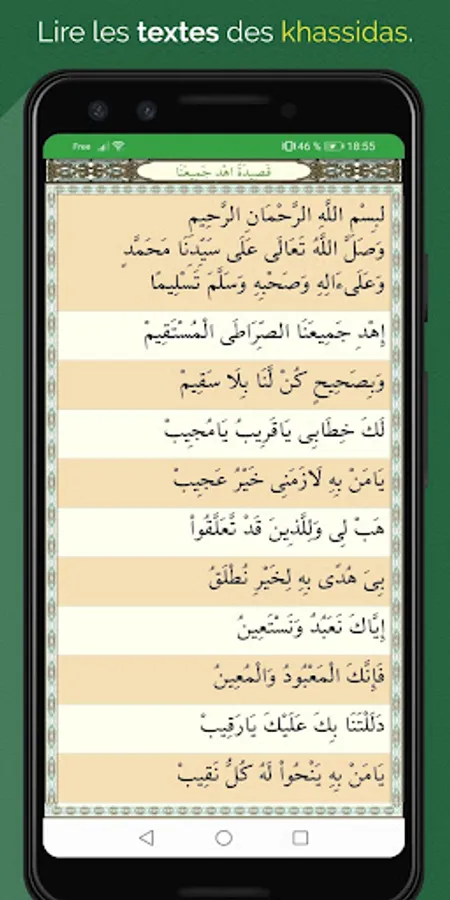 Lire les textes des khassidas.
Free 46 % 18:55
قَصِيدَةُ اهْدِ جَمِيعَنَا
بِسْمِ اللَّهِ الرَّحْمَانِ الرَّحِيمِ
وَصَلَّ اللَّهُ تَعَالَى عَلَى سَيِّدِنَا مَحَمَّدٍ
وَعَلَىءَالِهِ وَصَحْبِهِ وَسَلَّمَ تَسْلِيمًا
إِهْدِ جَمِيعَنَا الصِّرَاطَى الْمُسْتَقِيمْ
وَبِصَحِيحٍ كُنْ لَّنَا بِلَا سَقِيمْ
لَكَ خِطَابِى يَاقَرِيبُ يَامُجِيبْ
يَامَنْ بِهِ لَازَمَنِى خَيْرُ عَجِيبْ
هَبْ لِى وَلِلَّذِينَ قَدْ تَّعَلَّقُواْ
بِىَ هُدًى بِهِ لِخَيْرِ نُطْلَقُ
إِيَّاكَ نَعَبُدُ وَنَسْتَعِينُ
فَإِنَّكَ الْمَعْبُودُ وَالْمُعِينُ
دَلَلْتَنَا بِكَ عَلَيْكَ يَارَقِيبْ
يَامَنْ بِهِ يَنْحُواْ لَهُ كُلُّ نَقِيبْ